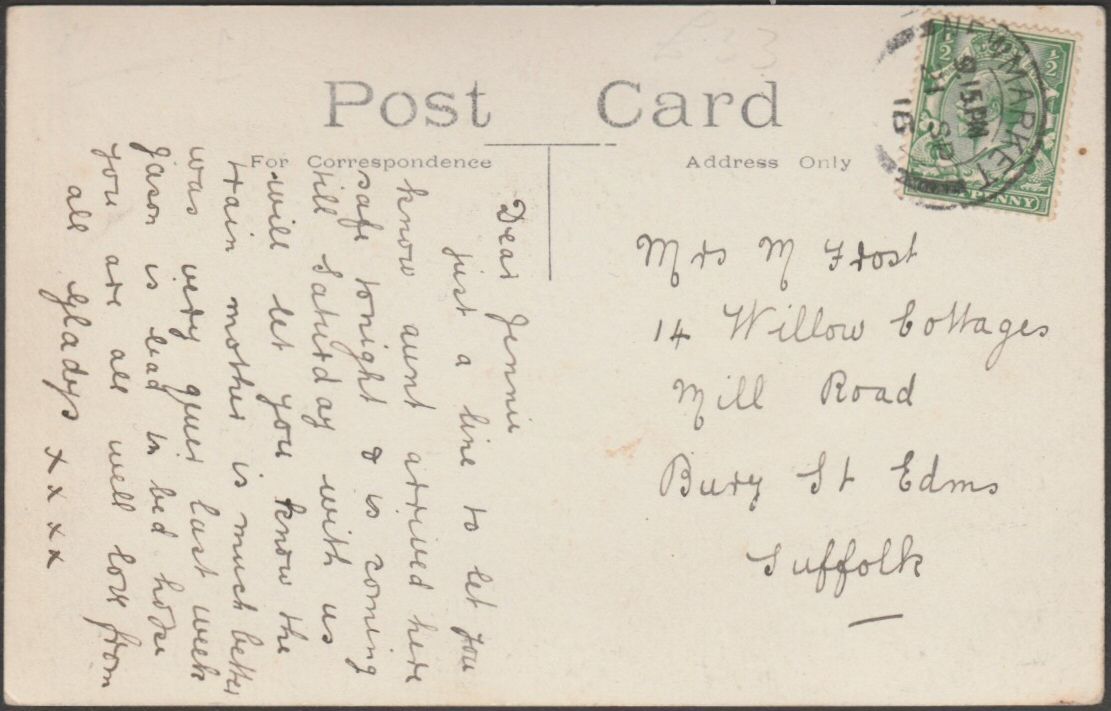 Post Card
For Correspondence
Address Only
NEWMARKET
9.15 PM
SP
16
½ ½
PENNY
Dear Jennie
just a line to let you
know aunt arrived here
safe tonight & is coming
till Saturday with us
will let you know the
train mother is much better
was very queer last week
is bad in bed hope
you are all well love from
all Gladys x x x x
Mrs M Frost
14 Willow Cottages
Mill Road
Bury St Edms
Suffolk